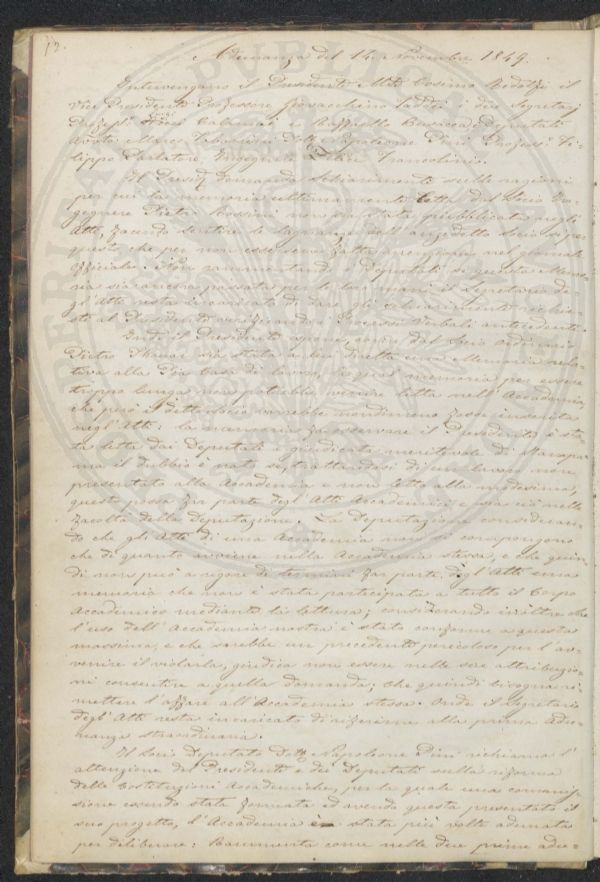 12.
Adunanza del 14 Novembre 1849.
Intervengono il Presidente M.se Cosimo Ridolfi il
Vice Presidente Professore Gioacchino Taddei i due Segretarj
Profess.i Luigi Calamai e Raffaello Busacca i Deputati
Avv.to Marco Tabarrini Dott. Napoleone Pini Profess.e Fi-
lippo Parlatore, Ingegnere Felice Francolini.
Il Presid.e domanda schiarimenti sulle ragioni
per cui la memoria ultimamente letta dal Socio In-
gegnere Pietro Rossini non sia stata pubblicata negli
Atti, facendo sentire le lagnanze dell'anzidetto socio si per
questo, che per non esserne fatta menzione nel giornale
officiale. Non rammentando i Deputati se questa Memo-
ria sia ancora passata per le loro mani il Segretario de-
gl'Atti resta incaricato di dare gli schiarimenti richie-
sti al Presidente verificando i Processi Verbali antecedenti.
Indi il Presidente espone, come dal Socio ordinario
Pietro Thouar sia stata a lui diretta una Memoria rela-
tiva alla Pia Casa di lavoro, la qual memoria per essere
troppo lunga non potrebbe venire letta nell'Accademia,
che però il detto socio vorrebbe nondimeno fosse inserita
negl'Atti: la memoria fa osservare il Presidente è sta-
ta letta dai Deputati e giudicata meritevole di stampa
ma il dubbio è nato se, trattandosi di un lavoro non
presentato alla Accademia e non letto alla medesima,
questo possa far parte degl'Atti Accademici e ciò nelle
facoltà della Deputazione. La Deputazione consideran-
do che gli Atti di una Accademia non si compongono
che di quanto avviene nella Accademia stessa, e che quin-
di non può a rigore di termini far parte degl'Atti una
memoria che non è stata participata a tutto il Corpo
Accademico mediante la lettura; considerando inoltre che
l'uso dell'Accademia nostra è stato conforme a questa
massima, e che sarebbe un precedente pericoloso per l'av-
venire il violarla, giudica non essere nelle sue attribuzio-
ni consentire a quella domanda; che quindi bisogna ri-
mettere l'affare all'Accademia stessa. Onde il Segretario
degl'Atti resta incaricato di riferirne alla prima Adu-
nanza straordinaria.
Il Socio Deputato Dott. Napoleone Pini richiama l'
attenzione del Presidente e dei Deputati sulla riforma
delle Costituzioni Accademiche, per la quale una commis-
sione essendo stata formata ed avendo questa presentato il
suo progetto, l'Accademia è stata più volte adunata
per deliberare: Rammenta come nelle due prime adu-